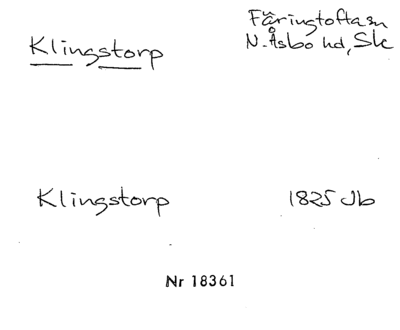 Klingstorp
Färingtofta sn
N. Åsbo hd, Sk
Klingstorp
1825 Jb
Nr 18361